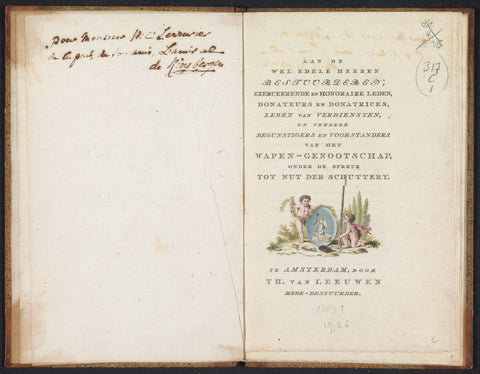 Pour Monsieur
de la part de son ami, L'amiral
de Kinsbergen
317
C
1
AAN DE
WEL EDELE HEEREN
BESTUURDEREN,
EXERCEERENDE EN HONORAIRE LEDEN,
DONATEURS EN DONATRICES,
LEDEN VAN VERDIENSTEN,
EN VERDERE
BEGUNSTIGERS EN VOORSTANDERS
VAN HET
WAPEN-GENOOTSCHAP,
ONDER DE SPREUK
TOT NUT DER SCHUTTERY.
TE AMSTERDAM, DOOR
TH. VAN LEEUWEN
MEDE-BESTUURDER.